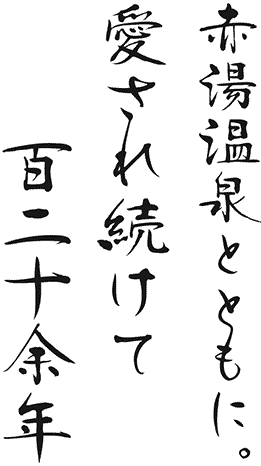 赤湯温泉とともに。
愛され続けて
百二十余年